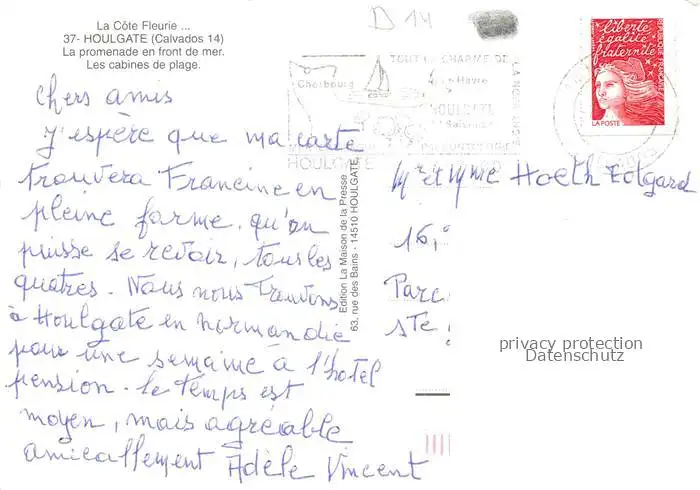 La Côte Fleurie ...
37- HOULGATE (Calvados 14)
La promenade en front de mer.
Les cabines de plage.
D 14
TOUT LE CHARME DE LA NORMANDIE
Cherbourg
Le Havre
HOULGATE
HOULGATE
liberté
égalité
fraternité
RÉPUBLIQUE FRANÇAISE
LA POSTE
Chers amis
J'espère que ma carte
trouvera Francine en
pleine forme, qu'on
puisse se revoir, tous les
quatres. Nous nous trouvons
à Houlgate en normandie
pour une semaine à l'hotel
pension. le temps est
moyen, mais agréable
amicallement Adèle Vincent
Edition La Maison de la Presse
63, rue des Bains - 14510 HOULGATE
Mr et Mme Hoeth Edgard
16,
Parc
ste
privacy protection
Datenschutz